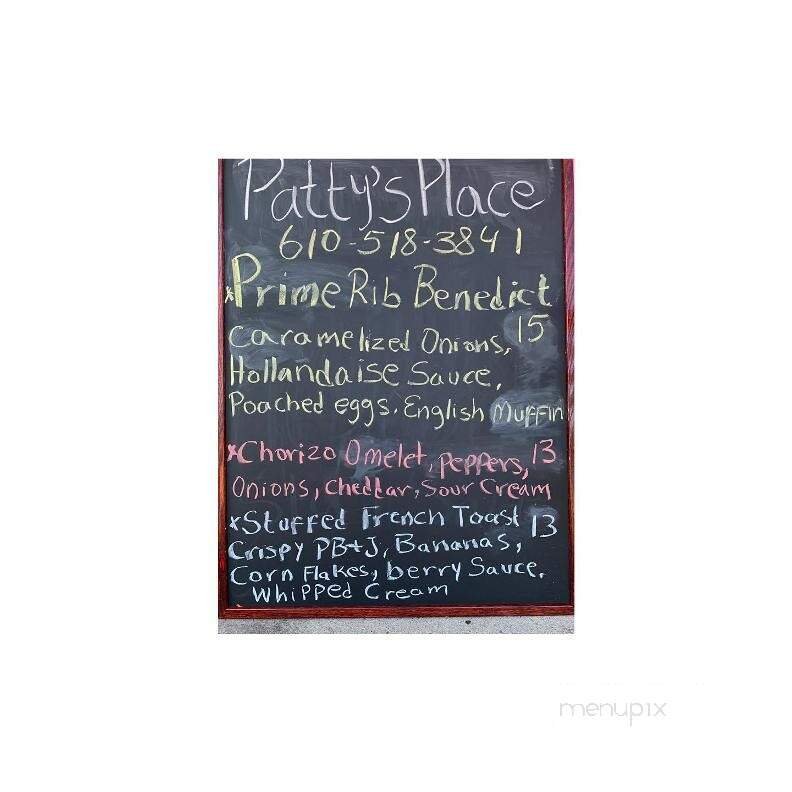 Patty's Place
610-518-3841
*Prime Rib Benedict
15
Caramelized Onions,
Hollandaise Sauce,
Poached eggs. English Muffin
*Chorizo Omelet, peppers, 13
Onions, Cheddar, Sour Cream
*Stuffed French Toast 13
Crispy PB+J, Bananas,
Corn Flakes, berry Sauce.
Whipped Cream
menupix